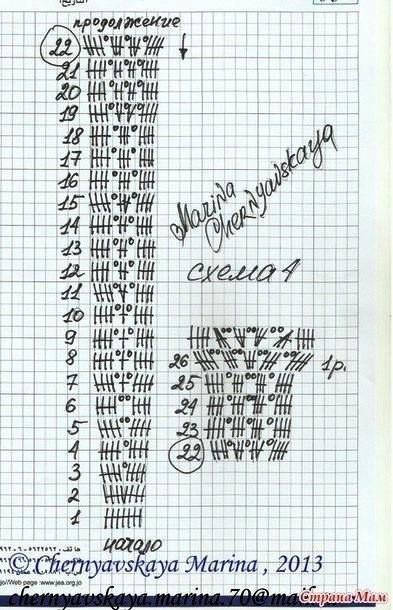 продолжение
22
21
20
19
18
17
16
15
14
13
12
11
10
9
8
7
6
5
4
3
2
1
начало
Marina
Chernyavskaya
схема 4
26 1р.
25
24
23
22
© Chernyavskaya Marina , 2013
jo//Web page :www.jea.org.jo
chernyavskaya.marina.70@mail
Страна Мам